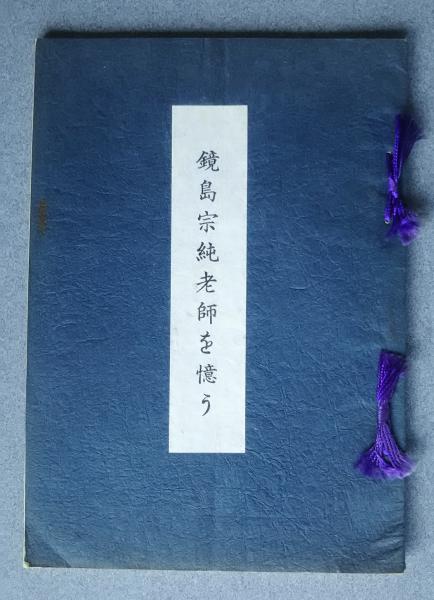 鏡島宗純老師を憶う